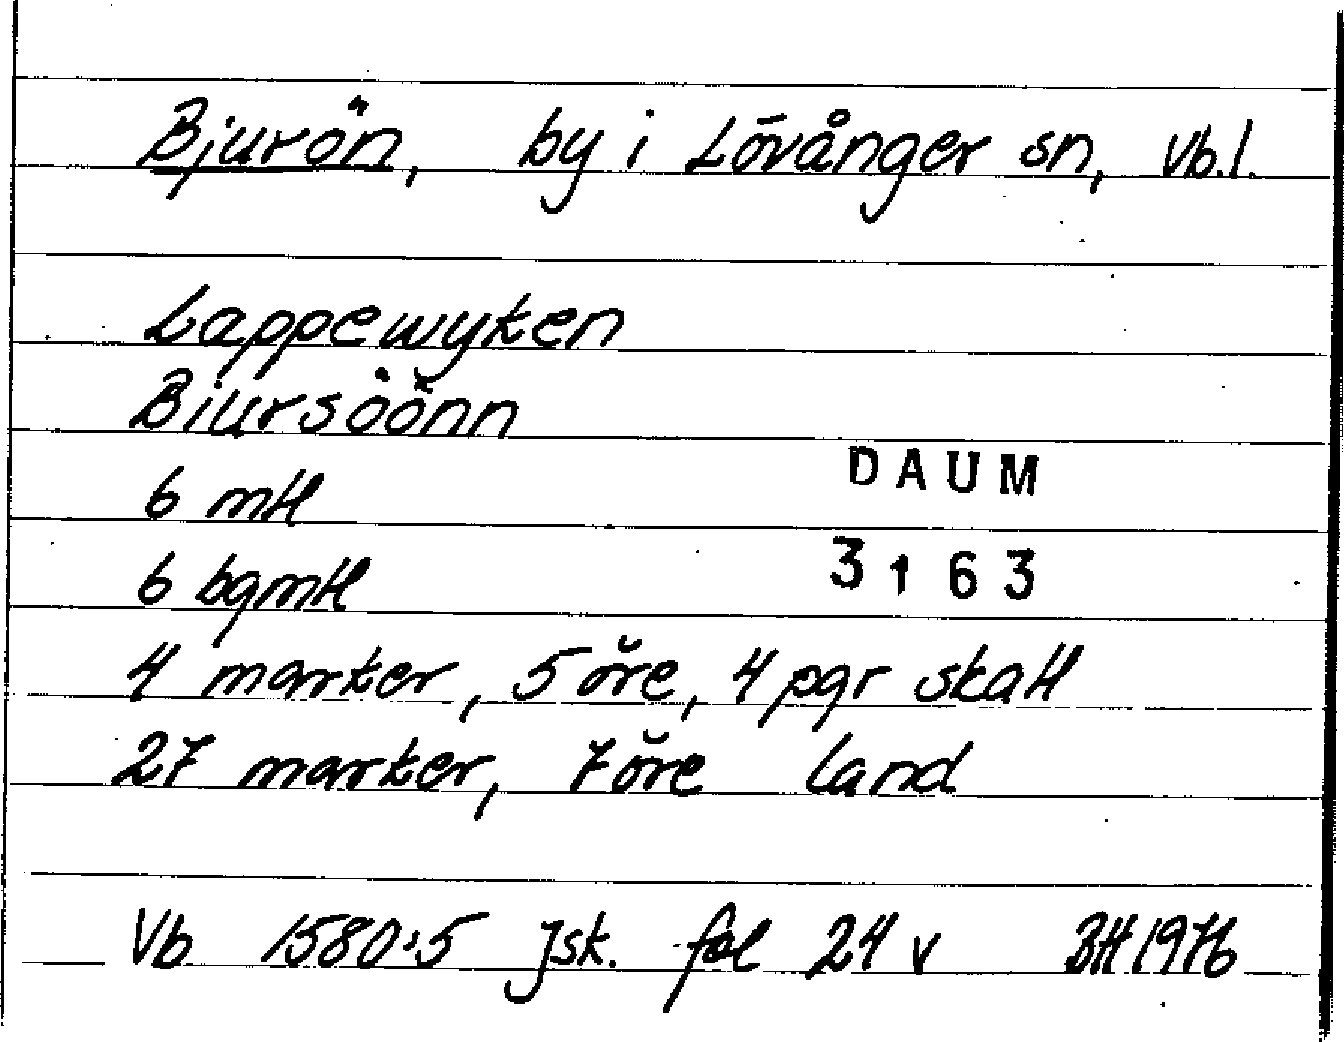 Bjurön, by i Lövånger sn, Vb.l.
Lappewyken
Biursöönn
6 mtl
6 bgmtl
4 marker, 5 öre, 4 pgr skatt
27 marker, 7 öre land
DAUM
3163
Vb 1580:5 Jsk. fol 24 v BH 1976